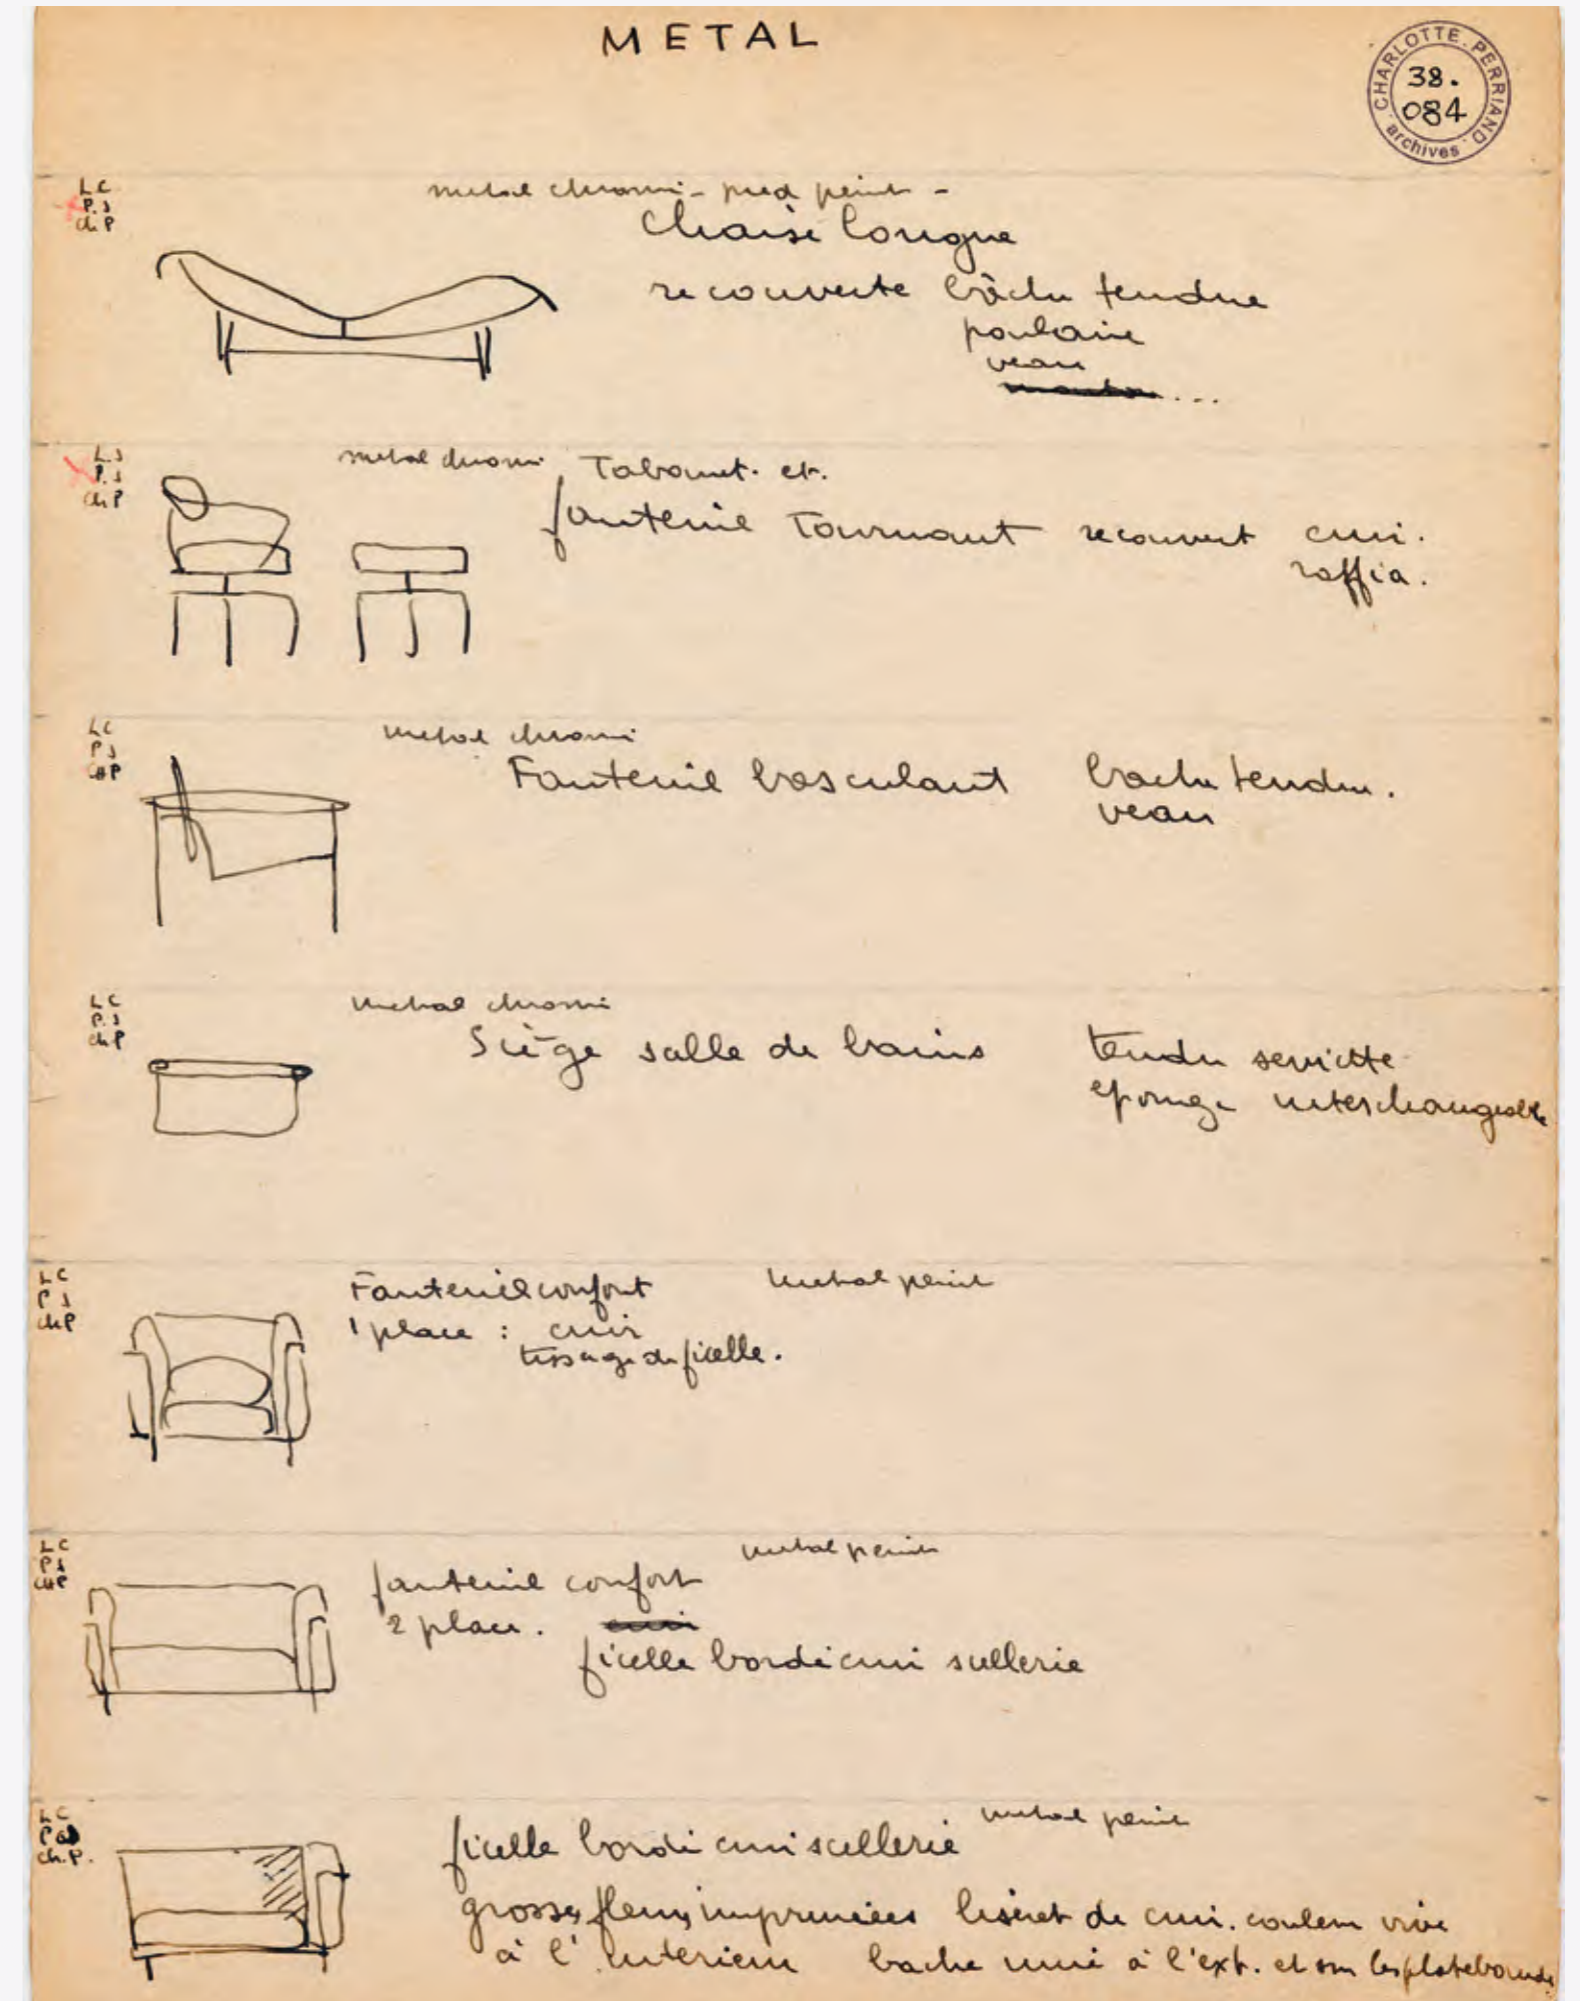 METAL
CHARLOTTE PERRIAND archives
38.
084
LC
P.J
ch P
metal chromé - pied peint -
Chaise longue
recouverte bâche tendue
poulain
veau
mouton ...
L.J
P.J
ch P
metal chromé
Tabouret. et.
fauteuil Tournant recouvert cuir.
raffia.
LC
PJ
CHP
metal chromé
Fauteuil basculant bache tendue.
veau
LC
P.J
ch P
metal chromé
Siège salle de bains tendu serviette
eponge interchangeable
LC
PJ
ch P
Fauteuil confort metal peint
1 place : cuir
tissage de ficelle.
LC
PJ
CHP
metal peint
fauteuil confort
2 place. cuir
ficelle bordé cuir sellerie
LC
ch.P.
metal peint
ficelle bordé cuir scellerie
grosses fleurs imprimées liseret de cuir. couleur vive
à l'interieur bache unie à l'ext. et sur les platebandes